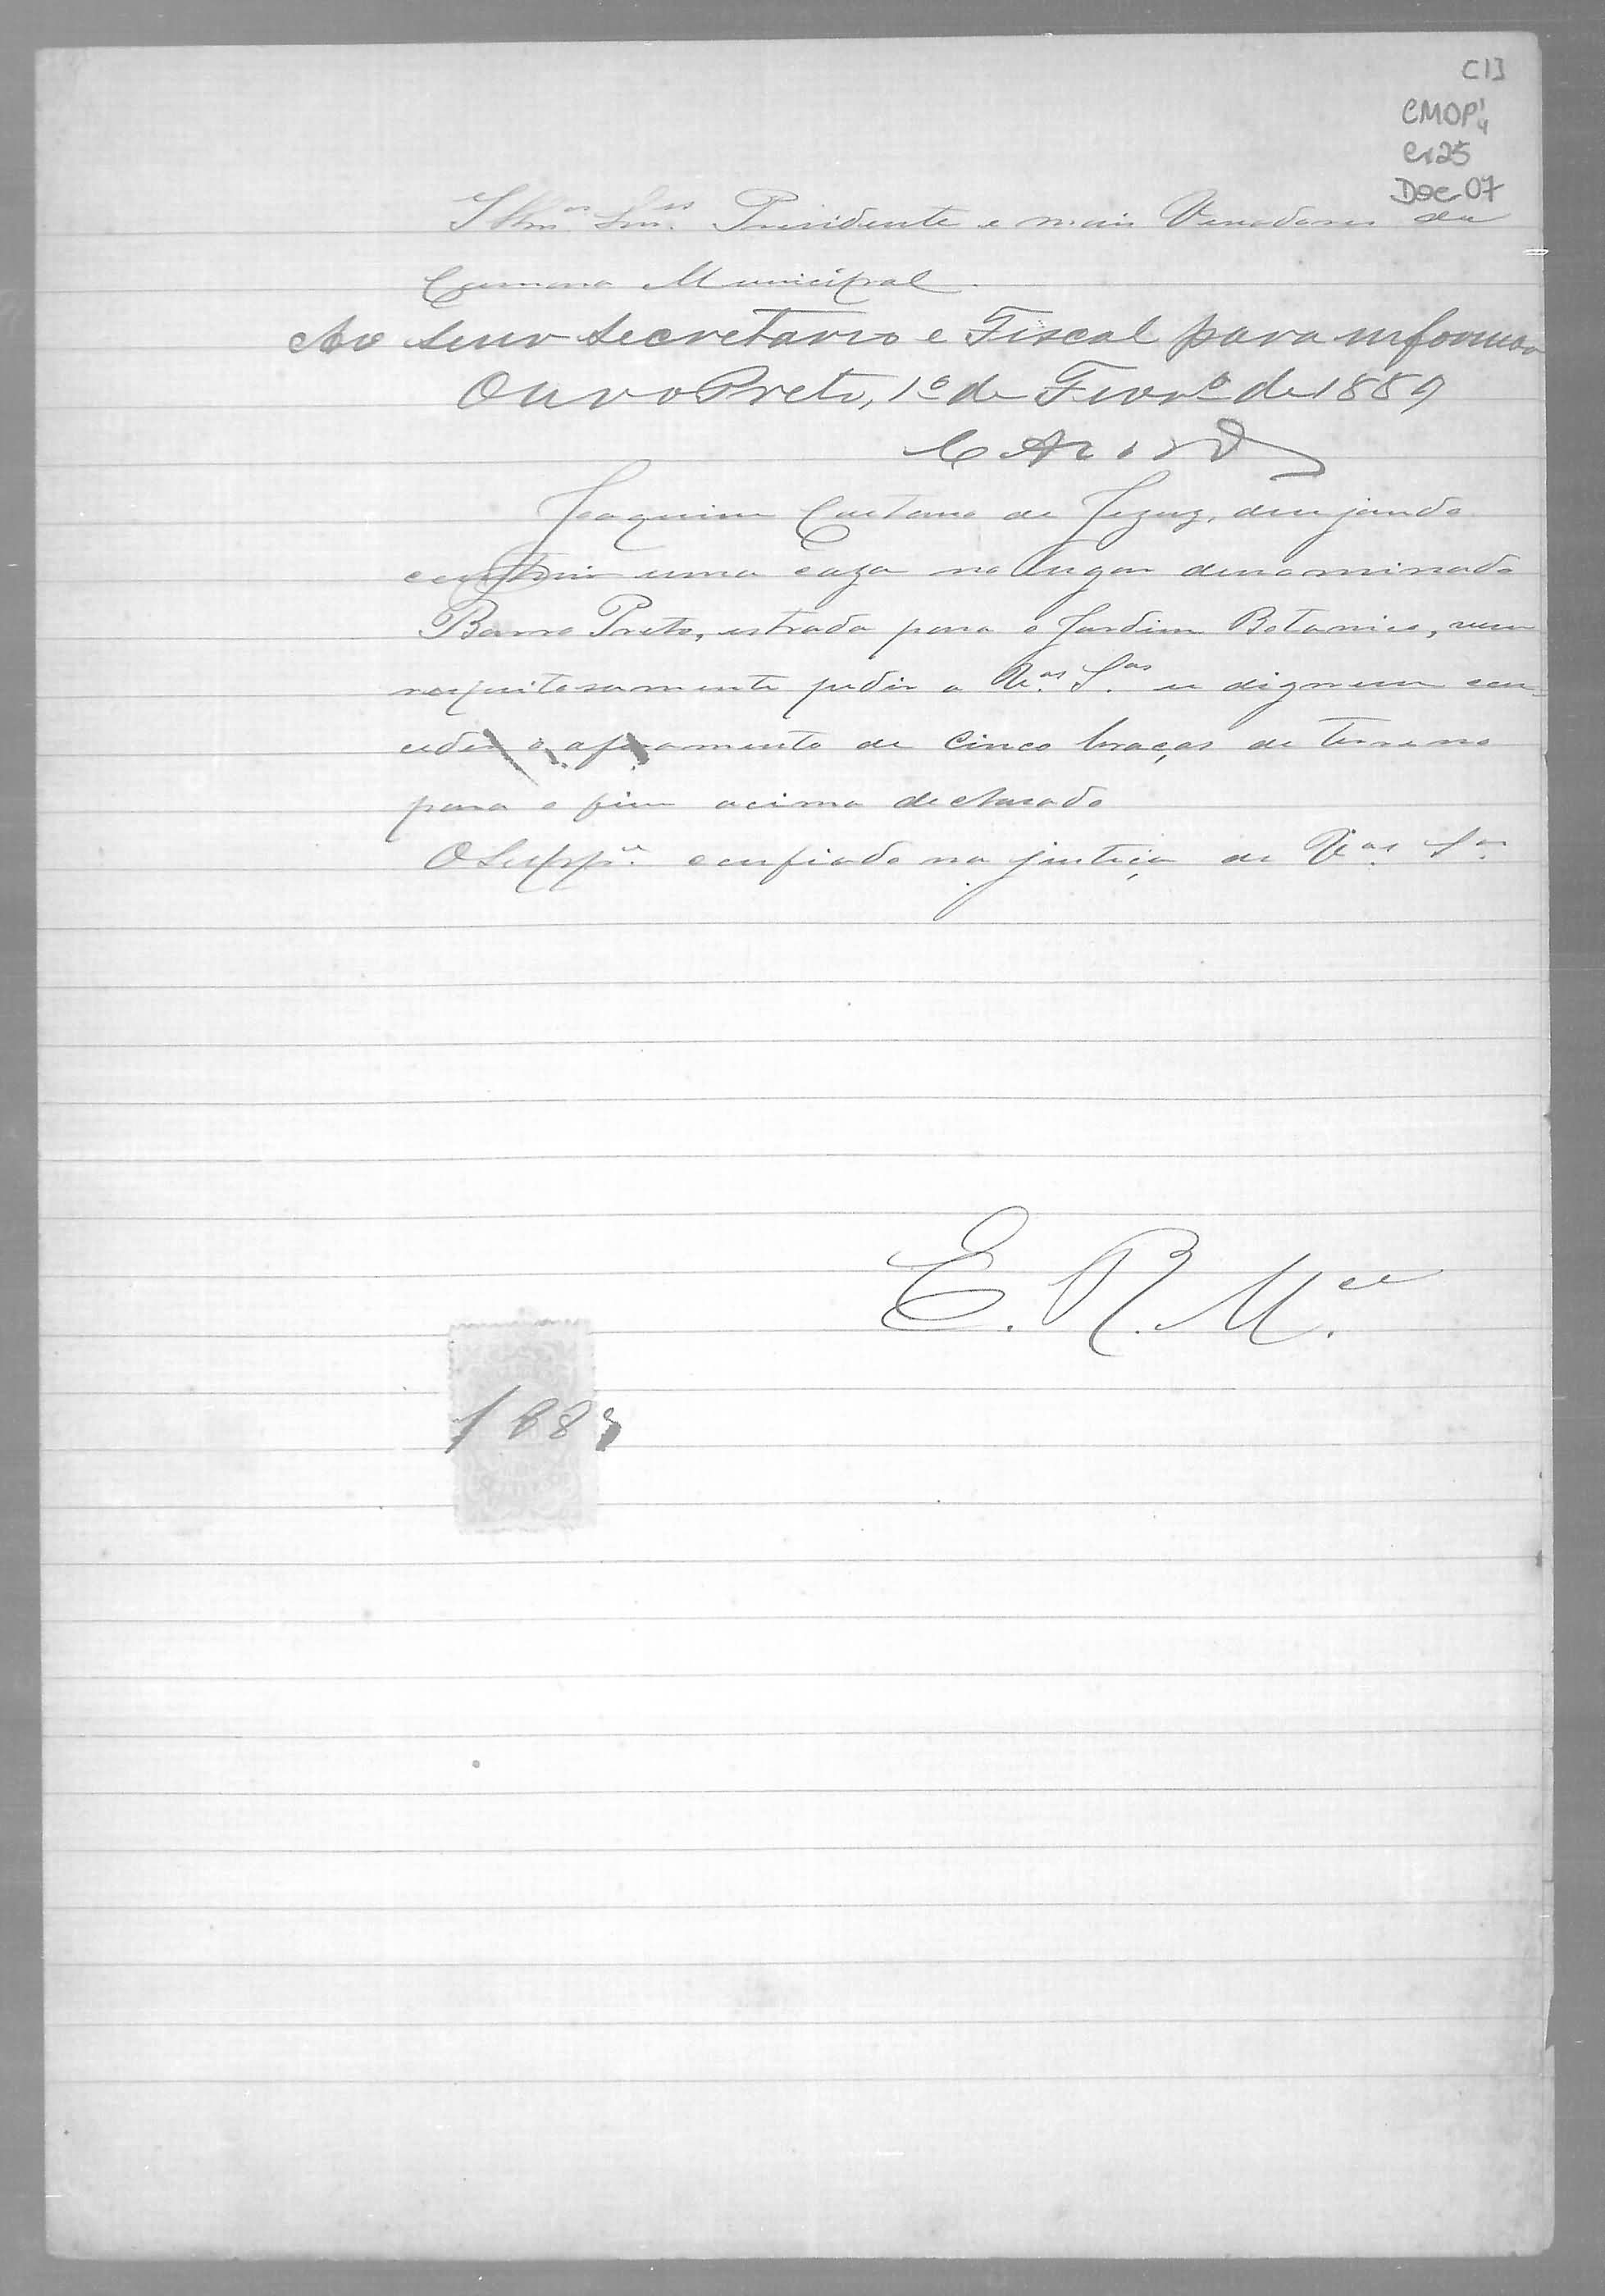 C13
CMOP 4
Cx25
Doc 07
Illmos Snrs. Presidente e mais Vereadores da
Camara Municipal.
Ao Snr Secretario e Fiscal para informar
Ouro Preto, 1º de Fevrº de 1889
Joaquim Caetano de Jezuz, dezejando
construir uma caza no lugar denominado
Barro Preto, estrada para o Jardim Botanico, vem
respeitosamente pedir a V.as S.as se dignem con=
ceder o aforamento de cinco braças de terreno
para o fim acima declarado
O Suppe. confiado na justiça de V.as S.as
E. R. M.ce
1889